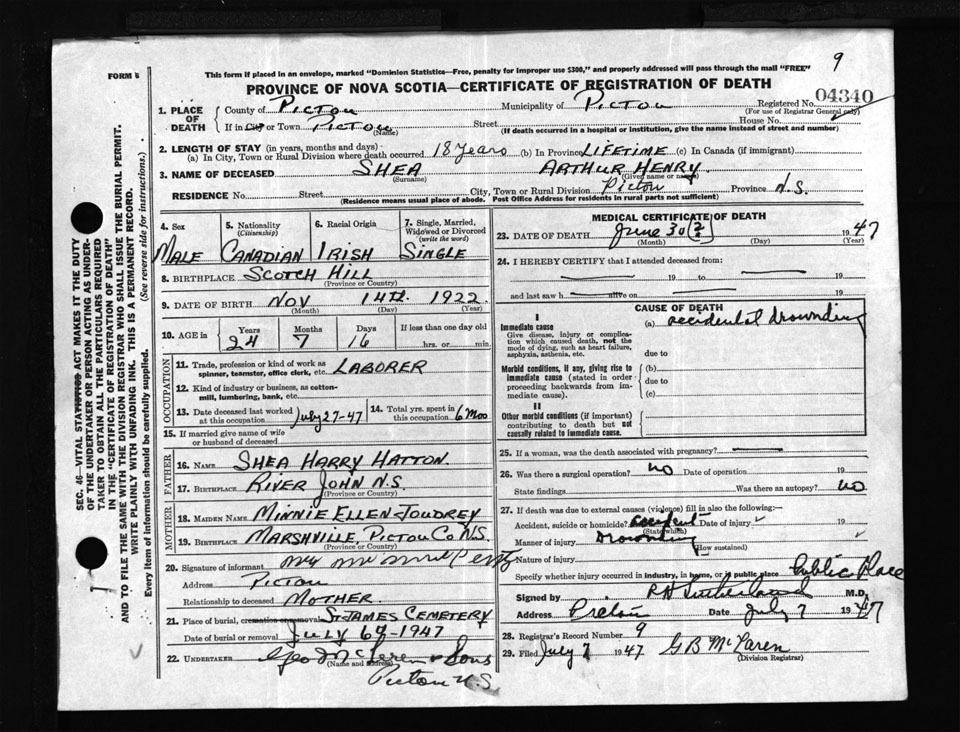 9
FORM 6
This form if placed in an envelope, marked "Dominion Statistics—Free, penalty for improper use $300," and properly addressed will pass through the mail "FREE"
PROVINCE OF NOVA SCOTIA—CERTIFICATE OF REGISTRATION OF DEATH
Registered No. 04340
(For use of Registrar General only)
1. PLACE OF DEATH County of PICTOU Municipality of PICTOU
If in City or Town PICTOU (Name) Street House No.
(If death occurred in a hospital or institution, give the name instead of street and number)
2. LENGTH OF STAY (in years, months and days)
(a) In City, Town or Rural Division where death occurred 18 Years (b) In Province LIFETIME (c) In Canada (if immigrant)
3. NAME OF DECEASED SHEA ARTHUR HENRY
(Surname) (Given name or names)
RESIDENCE No. Street City, Town or Rural Division Picton Province N.S.
(Residence means usual place of abode. Post Office Address for residents in rural parts not sufficient)
4. Sex MALE
5. Nationality (Citizenship) CANADIAN
6. Racial Origin IRISH
7. Single, Married, Widowed or Divorced (write the word) SINGLE
8. BIRTHPLACE SCOTCH HILL
(Province or Country)
9. DATE OF BIRTH NOV 14th. 1922.
(Month) (Day) (Year)
10. AGE in Years 24 Months 7 Days 16 If less than one day old hrs. or min.
OCCUPATION
11. Trade, profession or kind of work as spinner, teamster, office clerk, etc. LABORER
12. Kind of industry or business, as cotton-mill, lumbering, bank, etc.
13. Date deceased last worked at this occupation July 27-47
14. Total yrs. spent in this occupation 6 Mos
15. If married give name of wife or husband of deceased
FATHER
16. NAME SHEA HARRY HATTON.
17. BIRTHPLACE RIVER JOHN N.S.
(Province or Country)
MOTHER
18. MAIDEN NAME MINNIE ELLEN JOUDREY
19. BIRTHPLACE MARSHVILLE, PICTOU CO N.S.
(Province or Country)
20. Signature of informant
Address PICTOU
Relationship to deceased MOTHER.
21. Place of burial, cremation or removal ST JAMES CEMETERY
Date of burial or removal JULY 6th-1947
22. UNDERTAKER Geo McLaren & Sons
(Name and address)
Picton N.S.
MEDICAL CERTIFICATE OF DEATH
23. DATE OF DEATH June 30 (?) 1947
(Month) (Day) (Year)
24. I HEREBY CERTIFY that I attended deceased from:
19 to 19
and last saw h alive on 19
CAUSE OF DEATH
I
Immediate cause (a) accidental drownding
Give disease, injury or complication which caused death, not the mode of dying, such as heart failure, asphyxia, asthenia, etc.
due to
Morbid conditions, if any, giving rise to immediate cause (stated in order proceeding backwards from immediate cause).
(b)
due to
(c)
II
Other morbid conditions (if important) contributing to death but not causally related to immediate cause.
25. If a woman, was the death associated with pregnancy?
26. Was there a surgical operation? no Date of operation 19
State findings Was there an autopsy? no
27. If death was due to external causes (violence) fill in also the following:
Accident, suicide or homicide? accident Date of injury 19
(State which)
Manner of injury Drownding
(How sustained)
Nature of injury
Specify whether injury occurred in industry, in home, or in public place Public Place
Signed by R H Sutherland M.D.
Address Picton Date July 7 1947
28. Registrar's Record Number 9
29. Filed July 7 1947 G B McLaren
(Division Registrar)
SEC. 46—VITAL STATISTICS ACT MAKES IT THE DUTY OF THE UNDERTAKER OR PERSON ACTING AS UNDERTAKER TO OBTAIN ALL THE PARTICULARS REQUIRED IN THE "CERTIFICATE OF REGISTRATION OF DEATH" AND TO FILE THE SAME WITH THE DIVISION REGISTRAR WHO SHALL ISSUE THE BURIAL PERMIT.
WRITE PLAINLY WITH UNFADING INK. THIS IS A PERMANENT RECORD.
Every item of information should be carefully supplied. (See reverse side for instructions.)